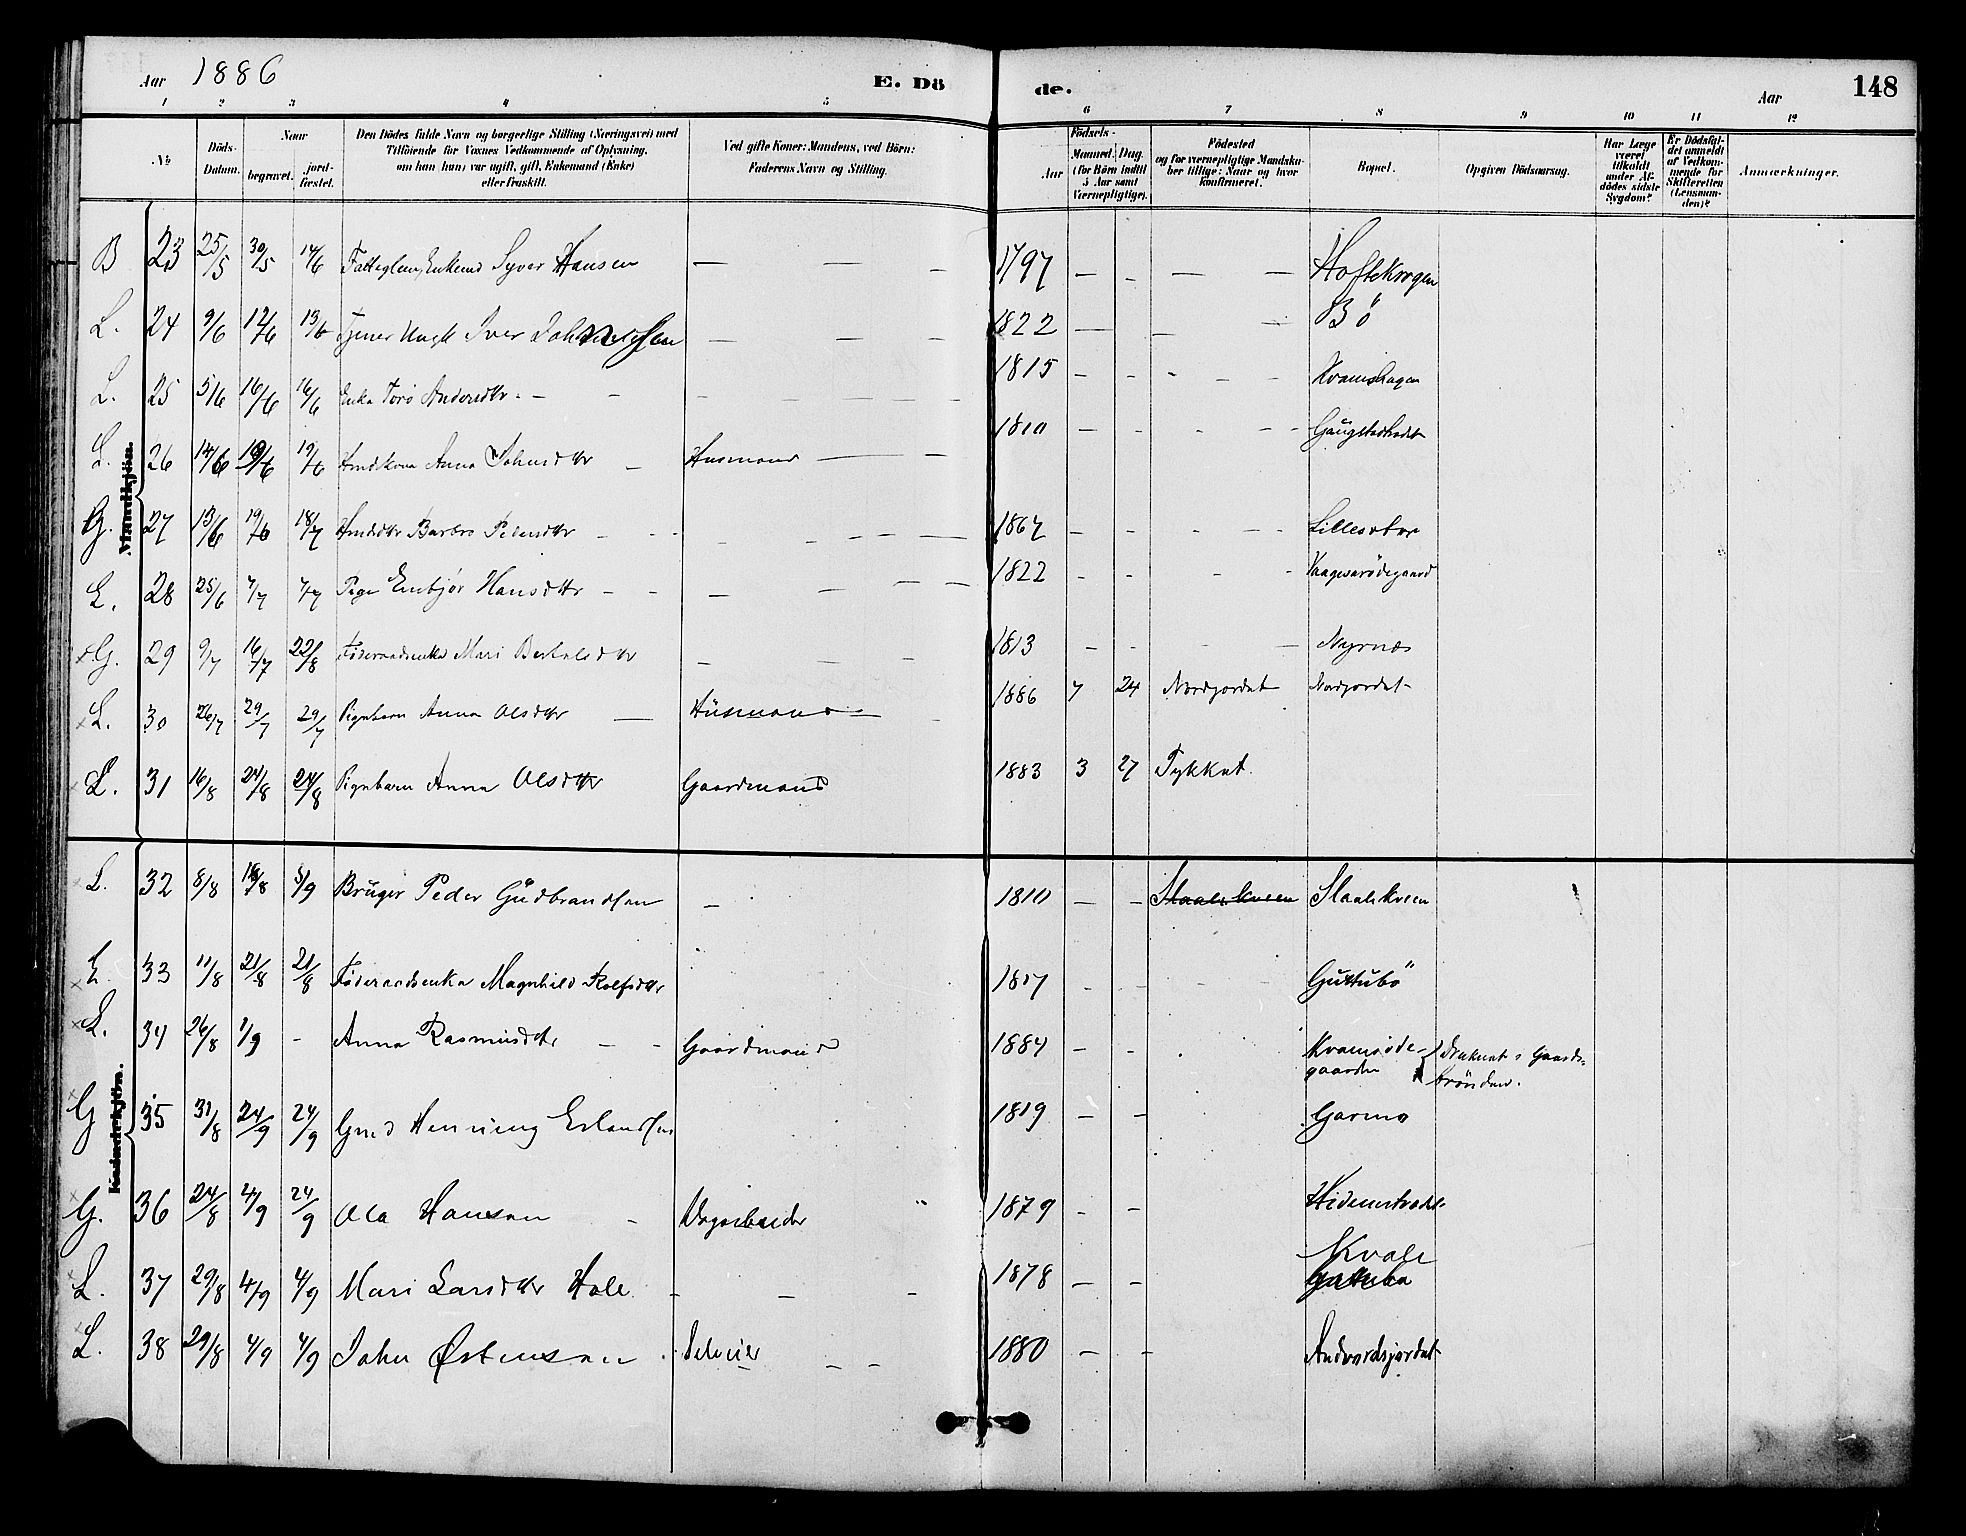 Aar 1886 E. Dö de. Aar 148
1 2 3 4 5 6 7 8 9 10 11 12
No Döds-Datum. Naar begravet. jord-fæstet. Den Dödes fulde Navn og borgerlige Stilling (Næringsvei) med Tilföiende for Voxnes Vedkommende af Oplysning, om han (hun) var ugift, gift, Enkemand (Enke) eller fraskilt. Ved gifte Koner: Mandens, ved Börn: Faderens Navn og Stilling. Födsels- Aar Maaned. Dag. (for Börn indtil 5 Aar samt Værnepligtige). Födested og for værnepligtige Mandskaber tillige: Naar og hvor konfirmeret. Bopæl. Opgiven Dödsaarsag. Har Læge været tilkaldt under Afdödes sidste Sygdom? Er Dödsfaldet anmeldt af Vedkommende for Skifteretten (Lensmanden)? Anmærkninger.
Mandkjön.
B 23 25/5 30/5 14/6 Enkemd Syver Hansen — — — 1797 — — — —
L. 24 9/6 12/6 13/6 Iver Johannessen — — — 1822 — — — Bö
L. 25 5/6 16/6 16/6 Enke Torö Andersdtr. — — 1815 — — — — — Kvamshagen
L. 26 14/6 19/6 19/6 Anna Johnsdtr — Husmand — — 1810 — — — — —
G. 27 13/6 19/6 18/7 Barbro Pedersdtr — — — 1867 — — — — —
L. 28 25/6 7/7 7/7 Pige Embjör Hansdtr — — — — 1822 — — — —
G. 29 9/7 16/7 22/8 Föderaadsenke Mari — — — 1813 — — — —
L. 30 26/7 29/7 29/7 Pigebarn Anna Olsdtr — Husmand — — 1886 7 24 Nordjordet Nordjordet
L. 31 16/8 24/8 24/8 Pigebarn Anna Olsdtr Gaardmand 1883 3 27
L. 32 8/8 5/9 Bruger Peder Gudbrandsen — 1810 — — Slaalekveen
Kvindekjön.
L. 33 11/8 21/8 21/8 Föderaadsenke Magnhild Rolfsdtr 1817 — — Guttubö
L. 34 26/8 1/9 - Anna Rasmusdtr — — Gaardmand 1884 — — Kvamsöde-gaarden Druknet i Gaards-brönden.
G 35 31/8 24/9 24/9 Henning Erlandsen 1819 — — Garmo
G. 36 24/8 4/9 24/9 Ola Hansen — 1879 — —
L. 37 29/8 4/9 4/9 Mari Larsdtr Hole — — — 1878 — — Kvale
L. 38 29/8 4/9 4/9 John Østensen — — 1880 — — Andvordsjordet